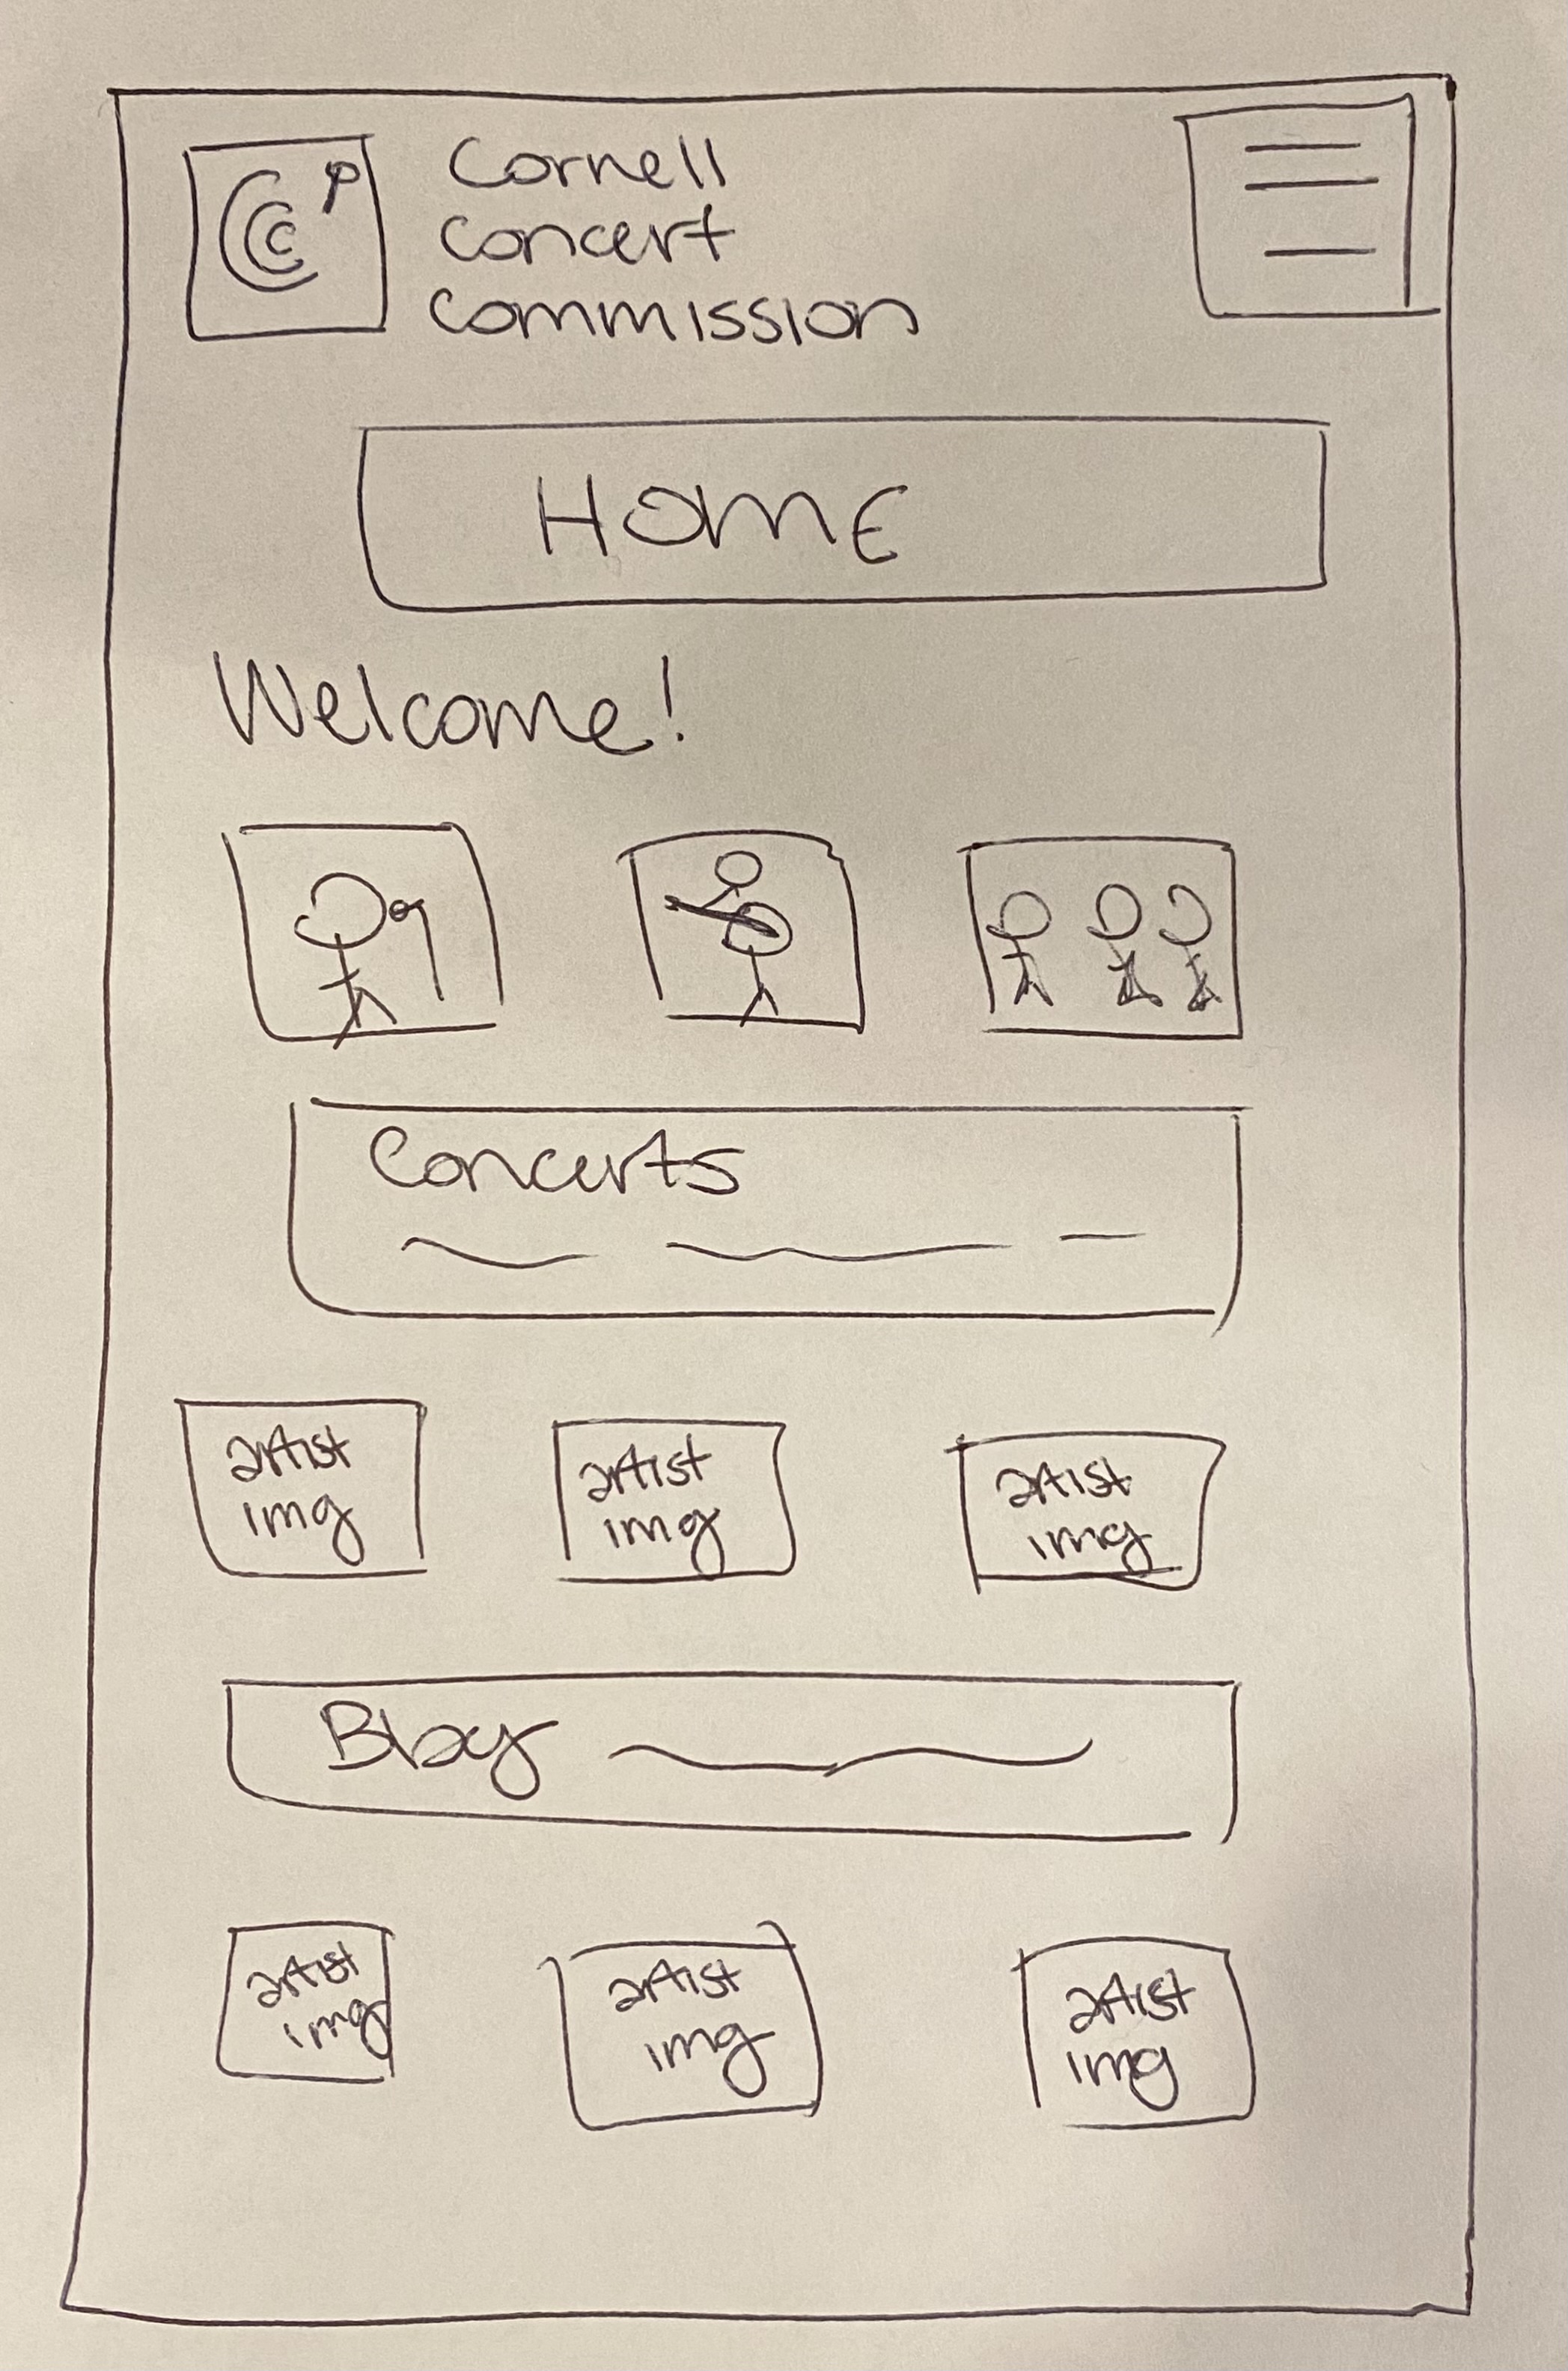 CCC
Cornell
Concert
Commission
HOME
Welcome!
Concerts
artist
img
artist
img
artist
img
Blog
artist
img
artist
img
artist
img